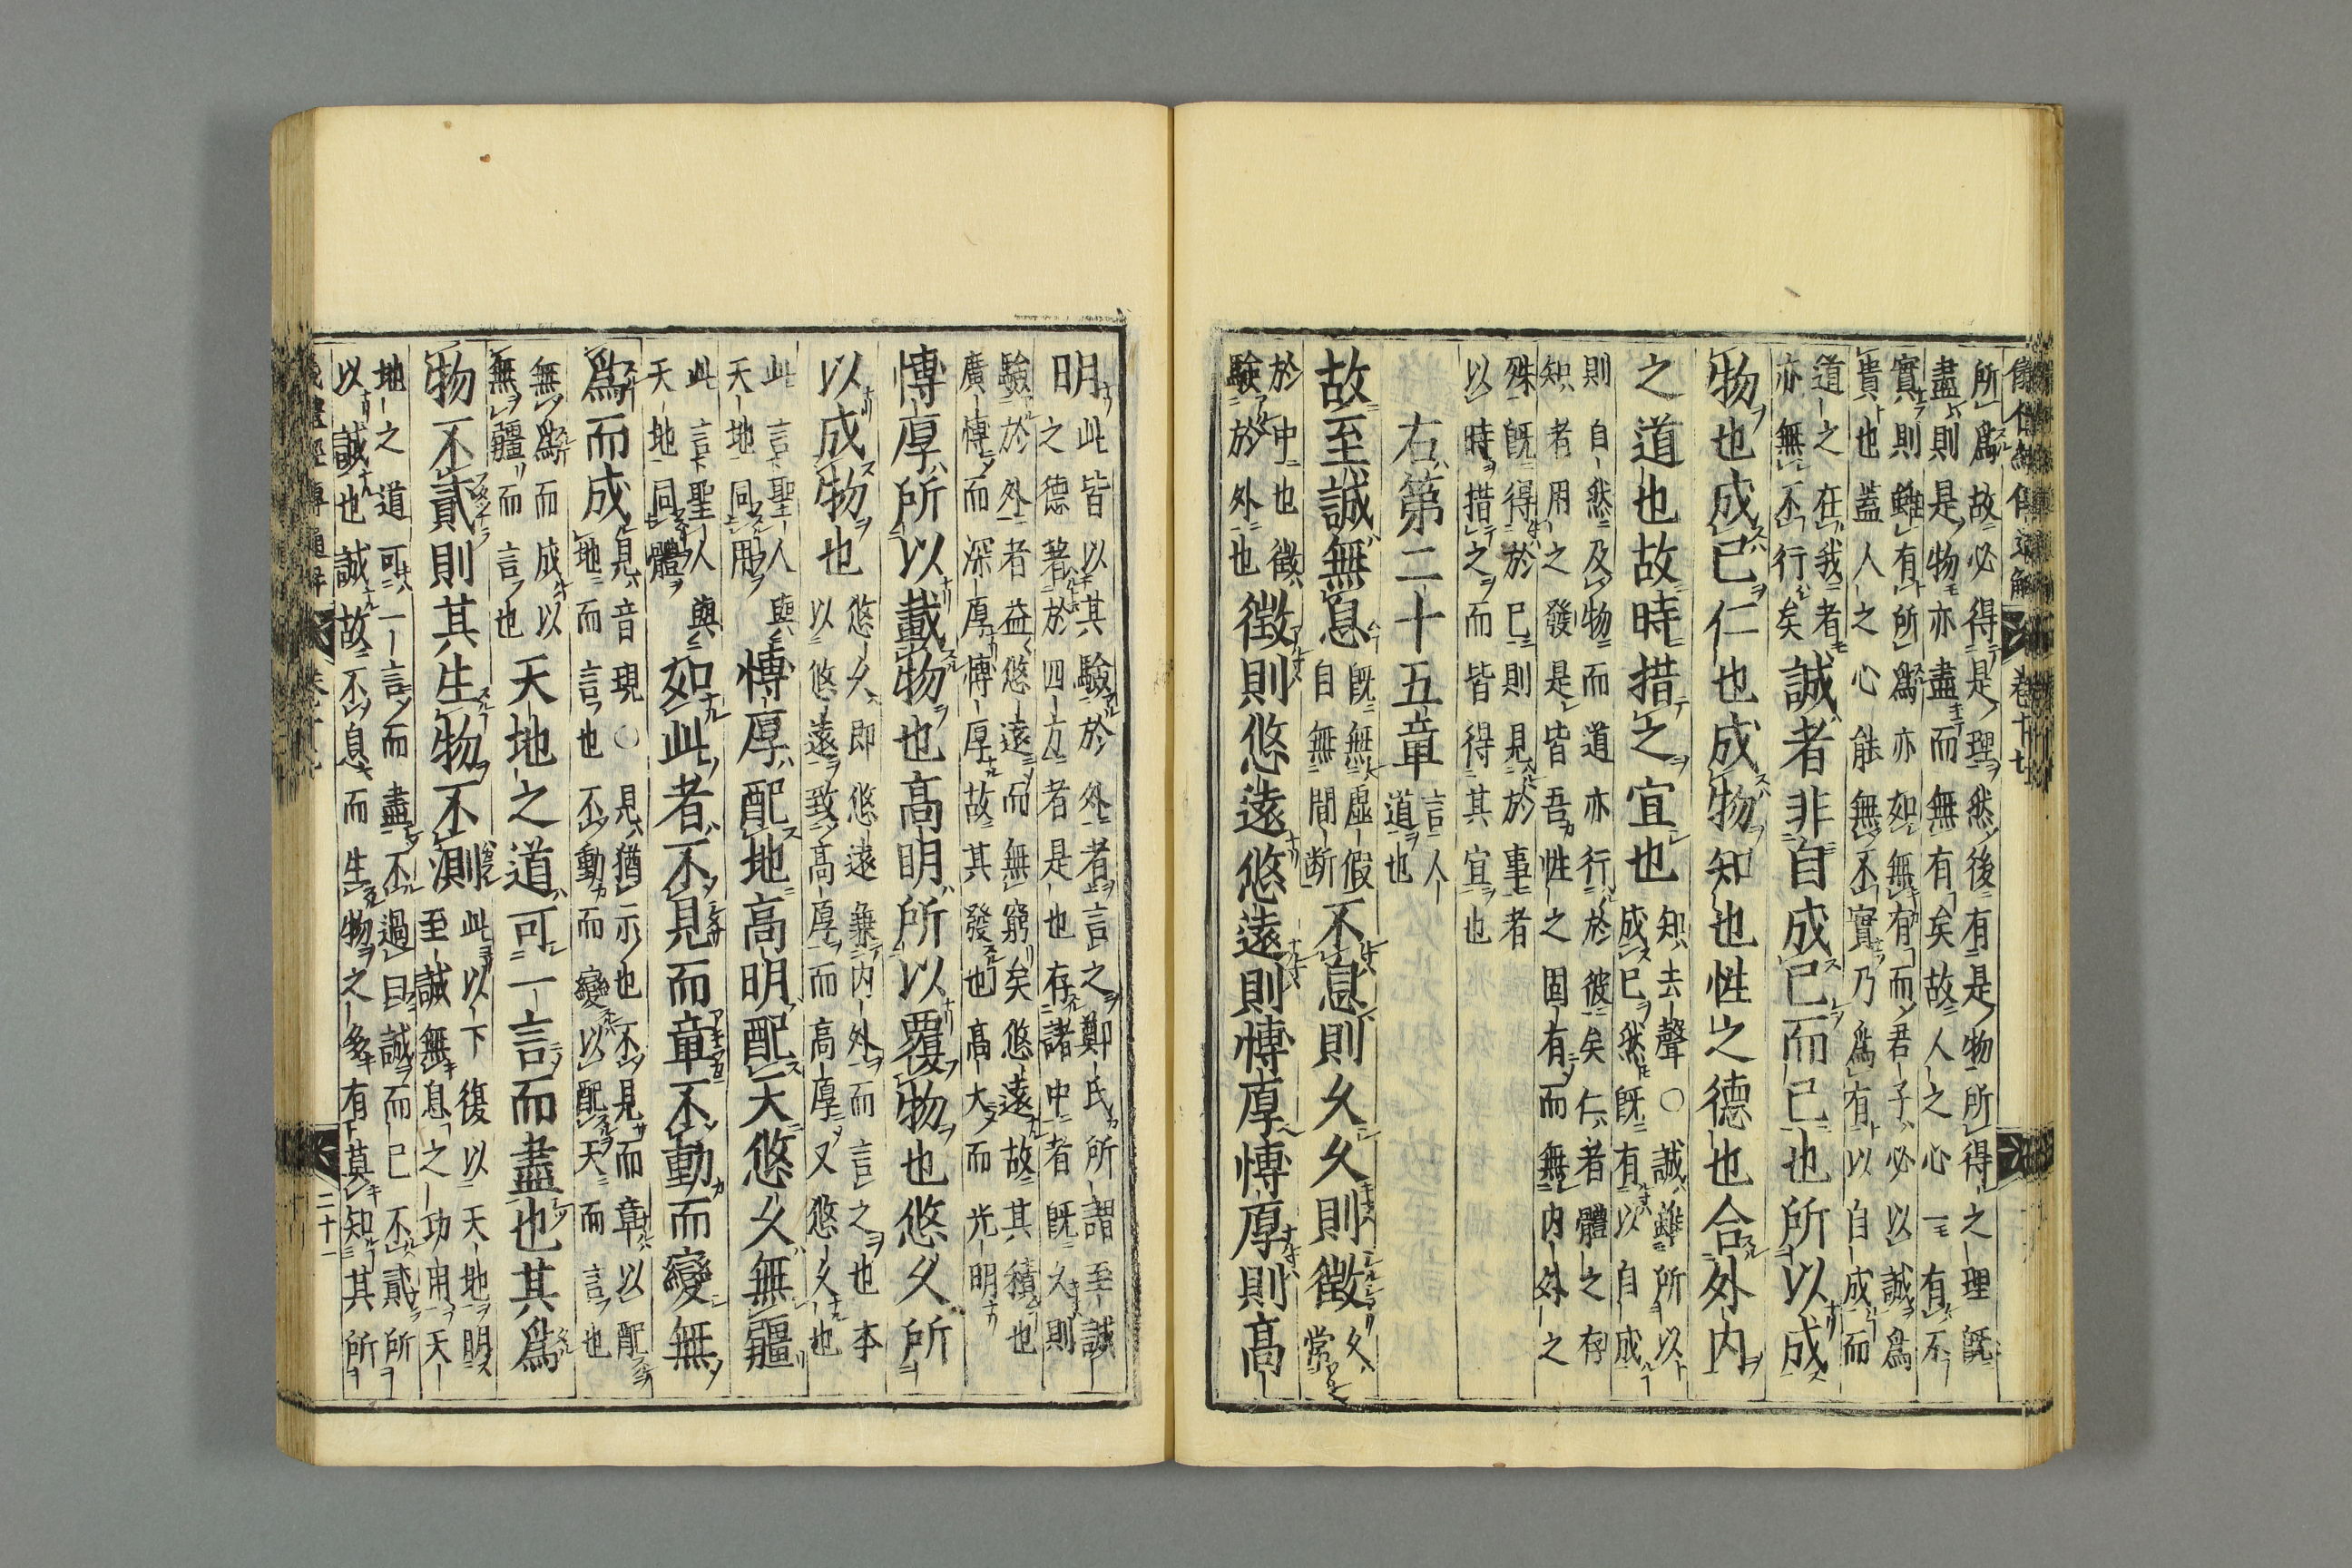 所爲故必得是理然後有是物所得之理既
盡則是物亦盡而無有矣故人之心一有不
實則雖有所爲亦如無有而君子必以誠爲
貴也蓋人之心能無不實乃爲有以自成而
道之在我者
亦無不行矣
誠者非自成已而已也所以成
物也成已仁也成物知也性之德也合外内
之道也故時措之宜也
知去聲○誠雖所以
成已然既有以自成
則自然及物而道亦行於彼矣仁者體之存
知者用之發是皆吾性之固有而無内外之
殊既得於已則見於事者
以時措之而皆得其宜也
右第二十五章
言人
道也
故至誠無息
既無虛假
自無間断
不息則久久則徴
久
常
於中也徴
驗於外也
徴則悠遠悠遠則博厚博厚則高
明
此皆以其驗於外者言之鄭氏所謂至誠
之德著於四方者是也存諸中者既久則
驗於外者益悠遠而無窮矣悠遠故其積也
廣博而深厚博厚故其發也高大而光明
博厚所以載物也高明所以覆物也悠久所
以成物也
悠久即悠遠兼内外而言之也本
以悠遠致高厚而高厚又悠久也
此言聖人與
天地同用
博厚配地高明配天悠久無疆
此言聖人與
天地同體
如此者不見而章不動而變無
爲而成
見音現○見猶示也不見而章以配
地而言也不動而變以配天而言也
無爲而成以
無疆而言也
天地之道可一言而盡也其爲
物不貳則其生物不測
此以下復以天地明
至誠無息之功用天
地之道可一言而盡不過曰誠而已不貳所
以誠也誠故不息而生物之多有莫知其所
卷十七
二十一